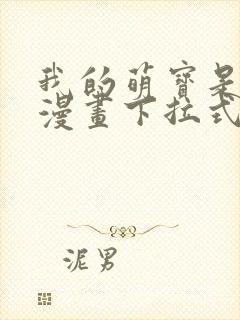 我的萌寶是
漫畫下拉式
泥男